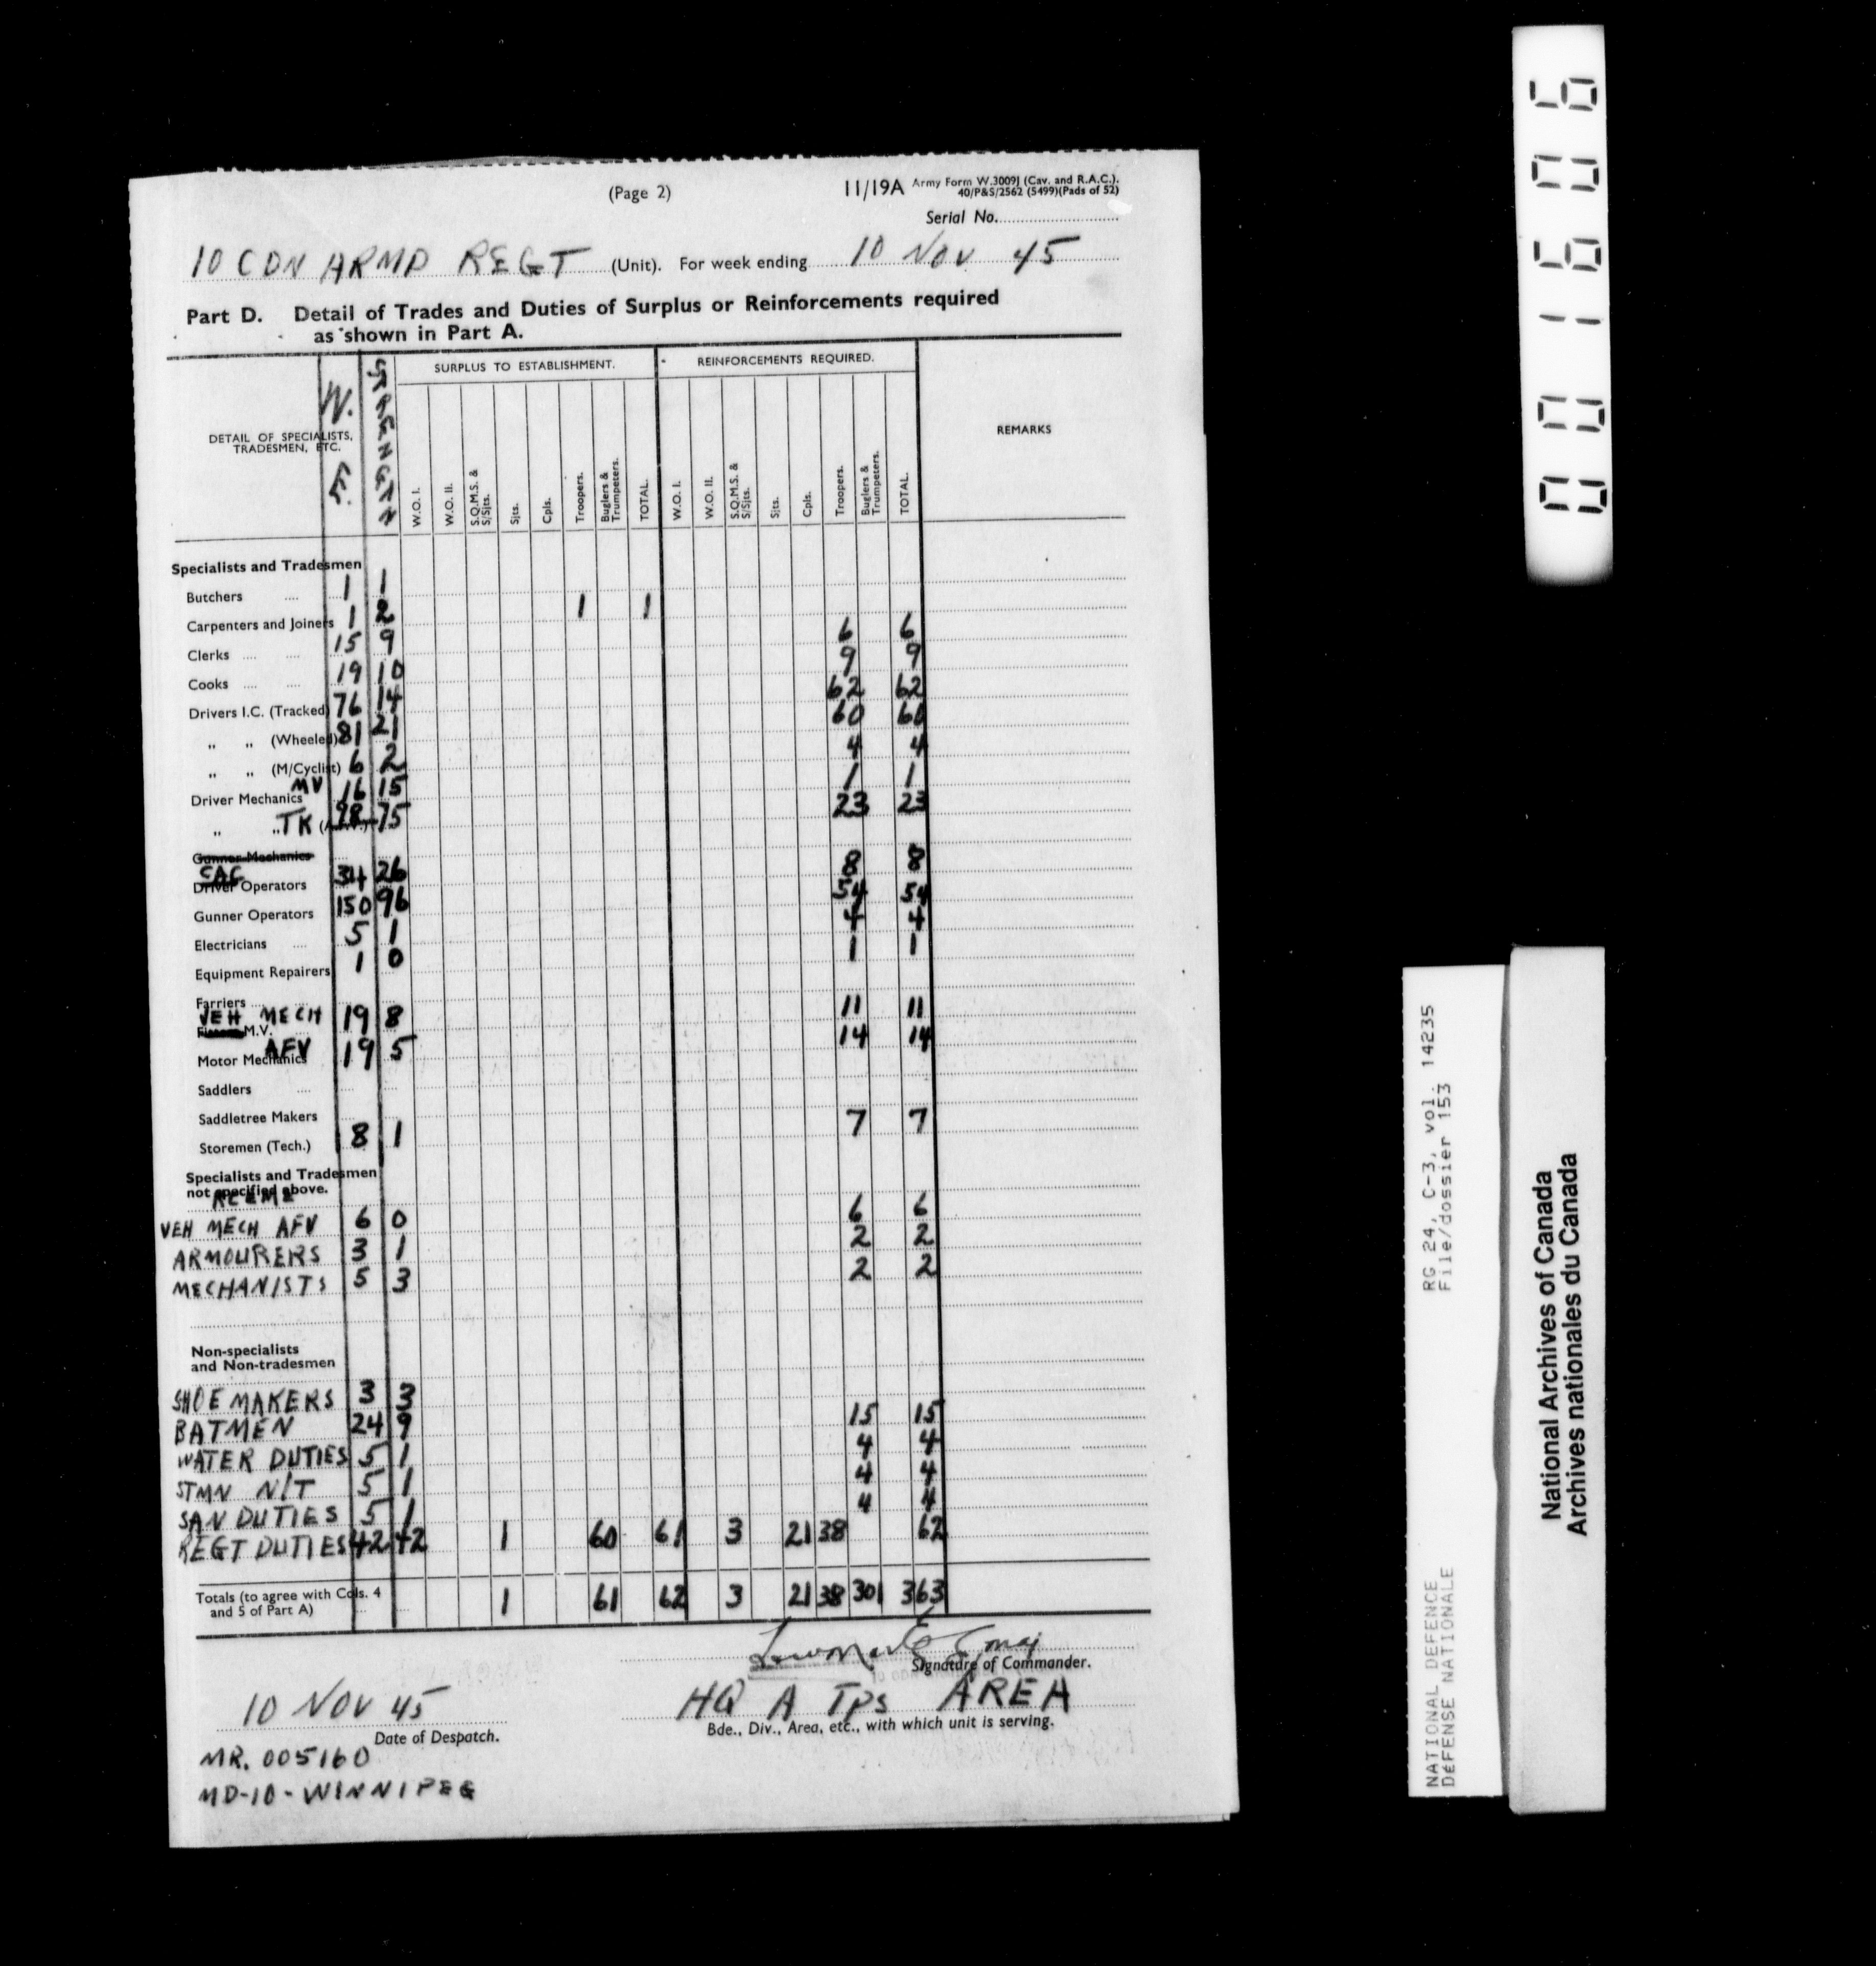 (Page 2)
11/19A Army Form W.3009J (Cav. and R.A.C.).
40/P&S/2562 (5499)(Pads of 52)
Serial No.
10 CDN ARMD REGT (Unit). For week ending 10 NOV 45
Part D. Detail of Trades and Duties of Surplus or Reinforcements required
as shown in Part A.
DETAIL OF SPECIALISTS, TRADESMEN, ETC. W.E. STRENGTH SURPLUS TO ESTABLISHMENT. REINFORCEMENTS REQUIRED. REMARKS
W.O. I. W.O. II. S.Q.M.S. & S/Sjts. Sjts. Cpls. Troopers. Buglers & Trumpeters. TOTAL. W.O. I. W.O. II. S.Q.M.S. & S/Sjts. Sjts. Cpls. Troopers. Buglers & Trumpeters. TOTAL.
Specialists and Tradesmen
Butchers 1 1
Carpenters and Joiners 1 2 1 1
Clerks 15 9 6 6
Cooks 19 10 9 9
Drivers I.C. (Tracked) 76 14 62 62
" " (Wheeled) 81 21 60 60
" " (M/Cyclist) 6 2 4 4
Driver Mechanics MV 16 15 1 1
" " TK 98 75 23 23
Gunner Mechanics
CAC Driver Operators 34 26 8 8
Gunner Operators 150 96 54 54
Electricians 5 1 4 4
Equipment Repairers 1 0 1 1
Farriers
VEH MECH M.V. 19 8 11 11
Motor Mechanics AFV 19 5 14 14
Saddlers
Saddletree Makers
Storemen (Tech.) 8 1 7 7
Specialists and Tradesmen
not specified above.
RCEME
VEH MECH AFV 6 0 6 6
ARMOURERS 3 1 2 2
MECHANISTS 5 3 2 2
Non-specialists
and Non-tradesmen
SHOEMAKERS 3 3
BATMEN 24 9 15 15
WATER DUTIES 5 1 4 4
STMN N/T 5 1 4 4
SAN DUTIES 5 1 4 4
REGT DUTIES 42 42 1 60 61 3 21 38 62
Totals (to agree with Cols. 4
and 5 of Part A) 1 61 62 3 21 38 301 363
Maj
Signature of Commander.
10 NOV 45 HQ A TPS AREA
Date of Despatch. Bde., Div., Area, etc., with which unit is serving.
MR. 005160
MD-10-WINNIPEG
001606
RG 24, C-3, vol. 14235
File/dossier 153
NATIONAL DEFENCE
DÉFENSE NATIONALE
National Archives of Canada
Archives nationales du Canada